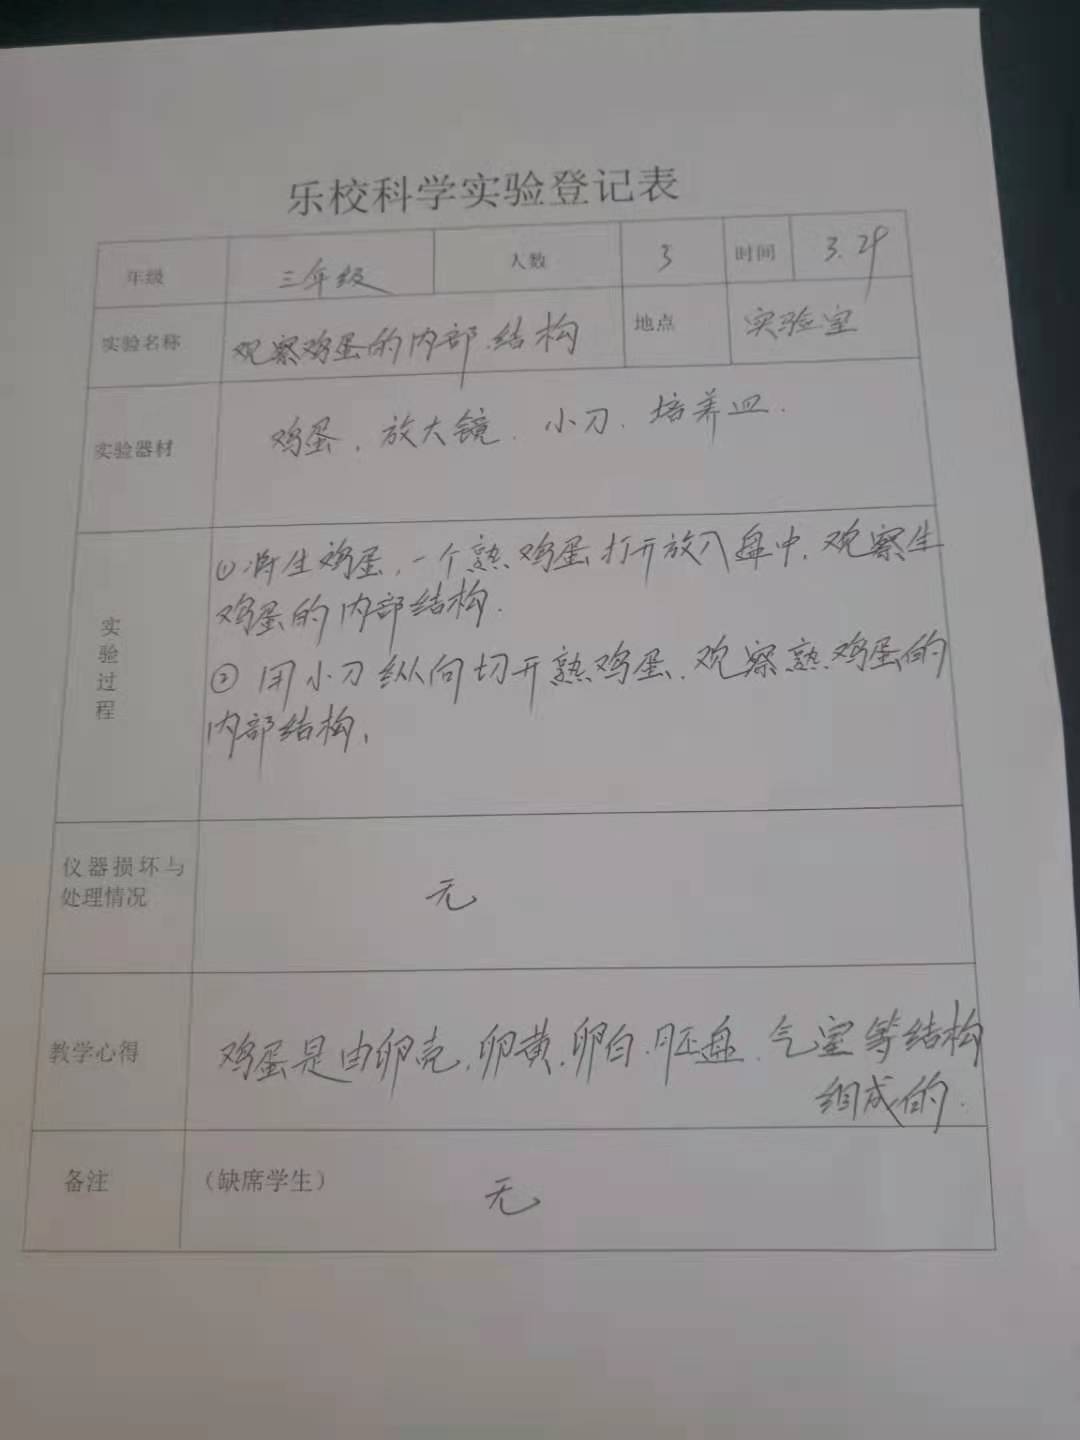 乐校科学实验登记表
年级 三年级 人数 3 时间 3.29
实验名称 观察鸡蛋的内部结构 地点 实验室
实验器材 鸡蛋、放大镜、小刀、培养皿.
实验过程
①将生鸡蛋,一个熟鸡蛋打开放入盘中,观察生
鸡蛋的内部结构.
②用小刀纵向切开熟鸡蛋,观察熟鸡蛋的
内部结构,
仪器损坏与
处理情况
无
教学心得 鸡蛋是由卵壳、卵黄、卵白、胚盘、气室等结构
组成的.
备注 (缺席学生) 无